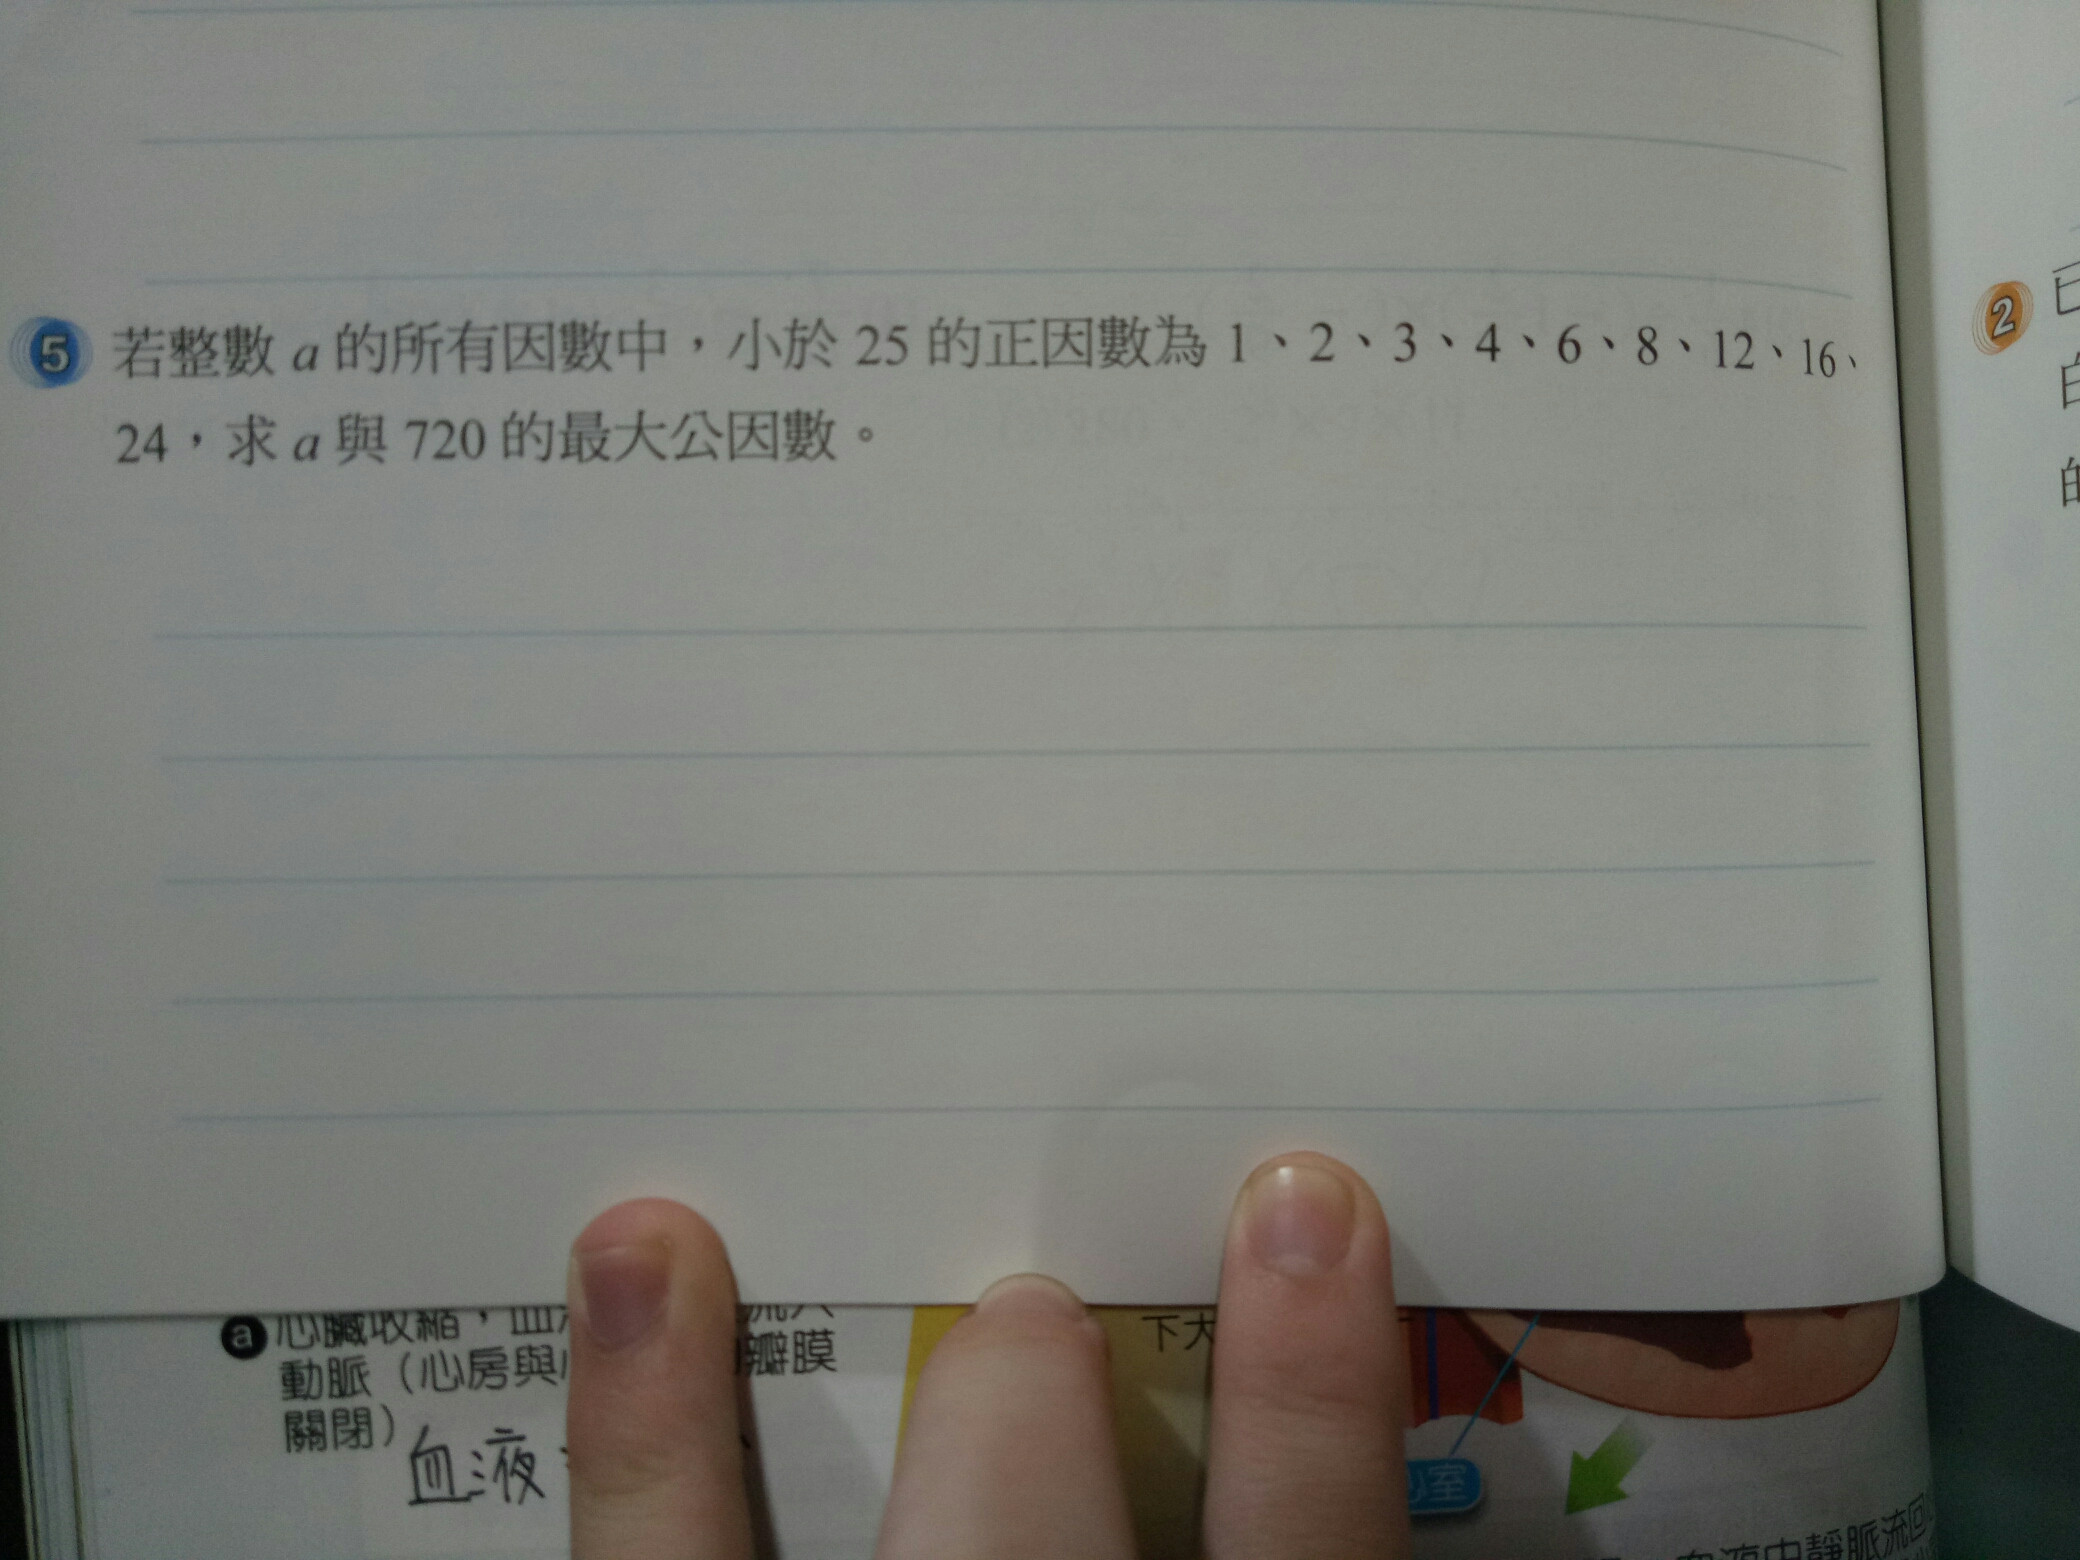 5 若整數 a 的所有因數中，小於 25 的正因數為 1、2、3、4、6、8、12、16、
24，求 a 與 720 的最大公因數。
2
a 心臟收縮，血
動脈（心房與 瓣膜
關閉）
血液
下大
心室
血液由靜脈流回